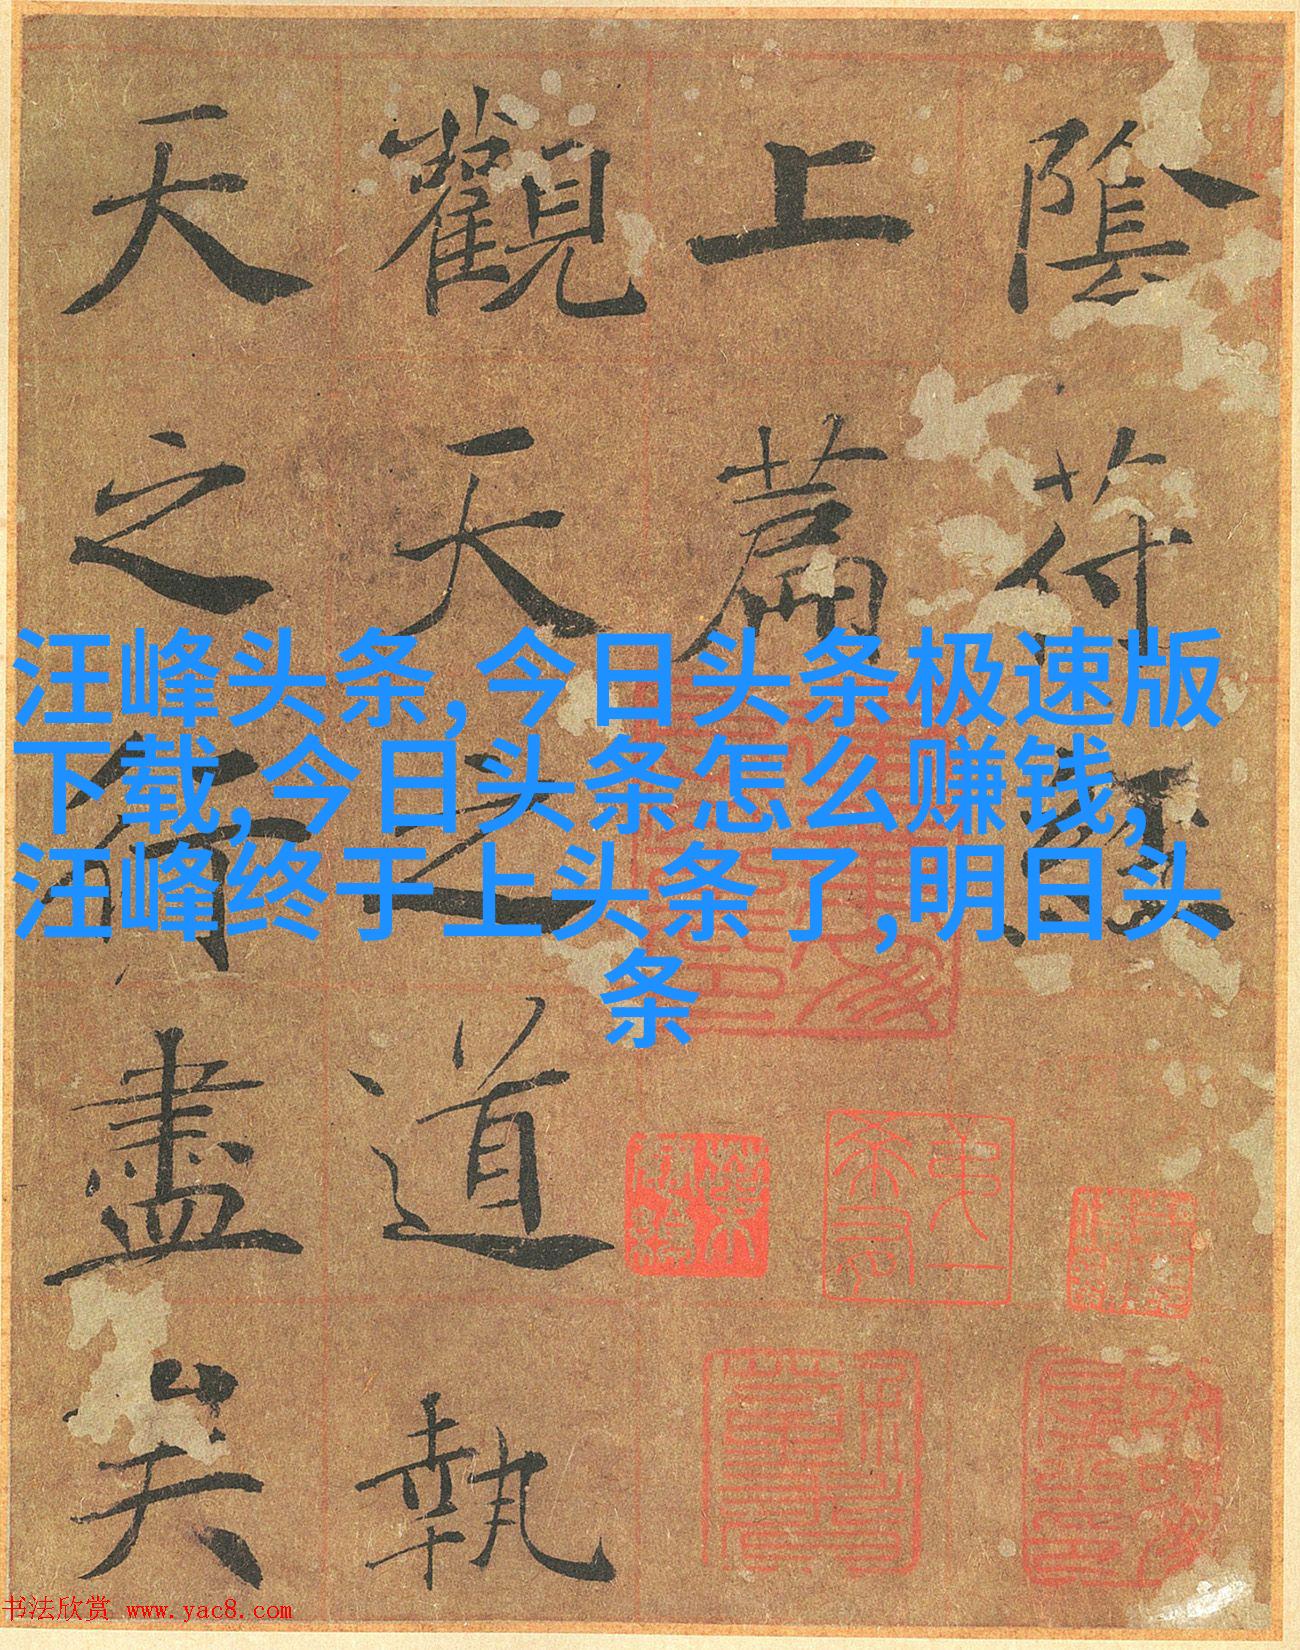 陰符經
上篇
觀天之道執
天之行盡矣
汪峰头条,今日头条极速版
下载,今日头条怎么赚钱,
汪峰终于上头条了,明日头
条
书法欣赏 www.yac8.com